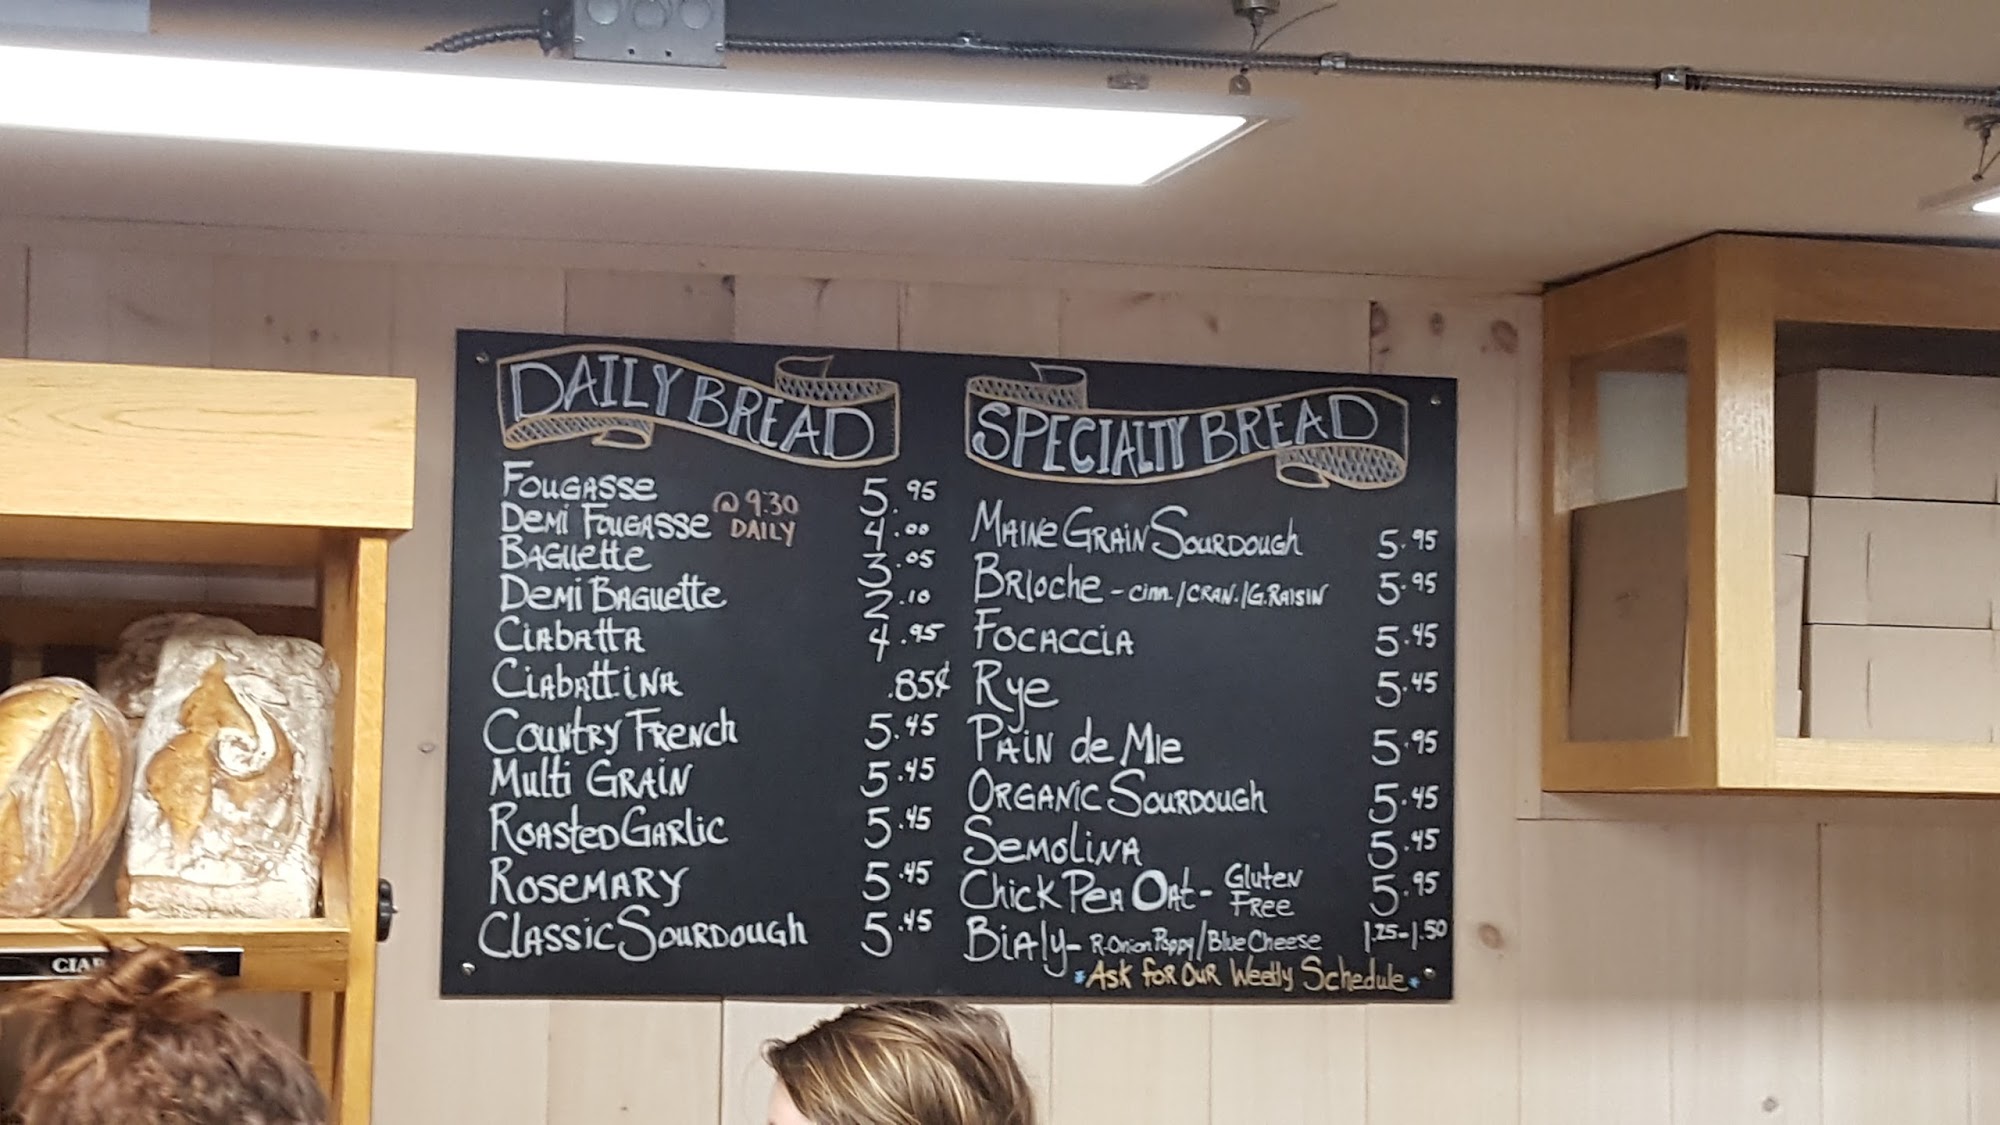 DAILY BREAD
FOUGASSE 5.95
DEMI FOUGASSE 4.00
@ 9:30
DAILY
BAGUETTE 3.05
DEMI BAGUETTE 2.10
CIABATTA 4.95
CIABATTINA .85¢
COUNTRY FRENCH 5.45
MULTI GRAIN 5.45
ROASTED GARLIC 5.45
ROSEMARY 5.45
CLASSIC SOURDOUGH 5.45
SPECIALTY BREAD
MAINE GRAIN SOURDOUGH 5.95
BRIOCHE - CINN./CRAN./G.RAISIN 5.95
FOCACCIA 5.45
RYE 5.45
PAIN de MIE 5.95
ORGANIC SOURDOUGH 5.45
SEMOLINA 5.45
CHICK PEA OAT - GLUTEN FREE 5.95
BIALY - R.Onion Poppy/Blue Cheese 1.25-1.50
*ASK FOR OUR WEEKLY SCHEDULE*